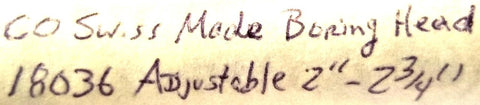 CO Swiss Made Boring Head
18036 Adjustable 2" - 2 3/4"